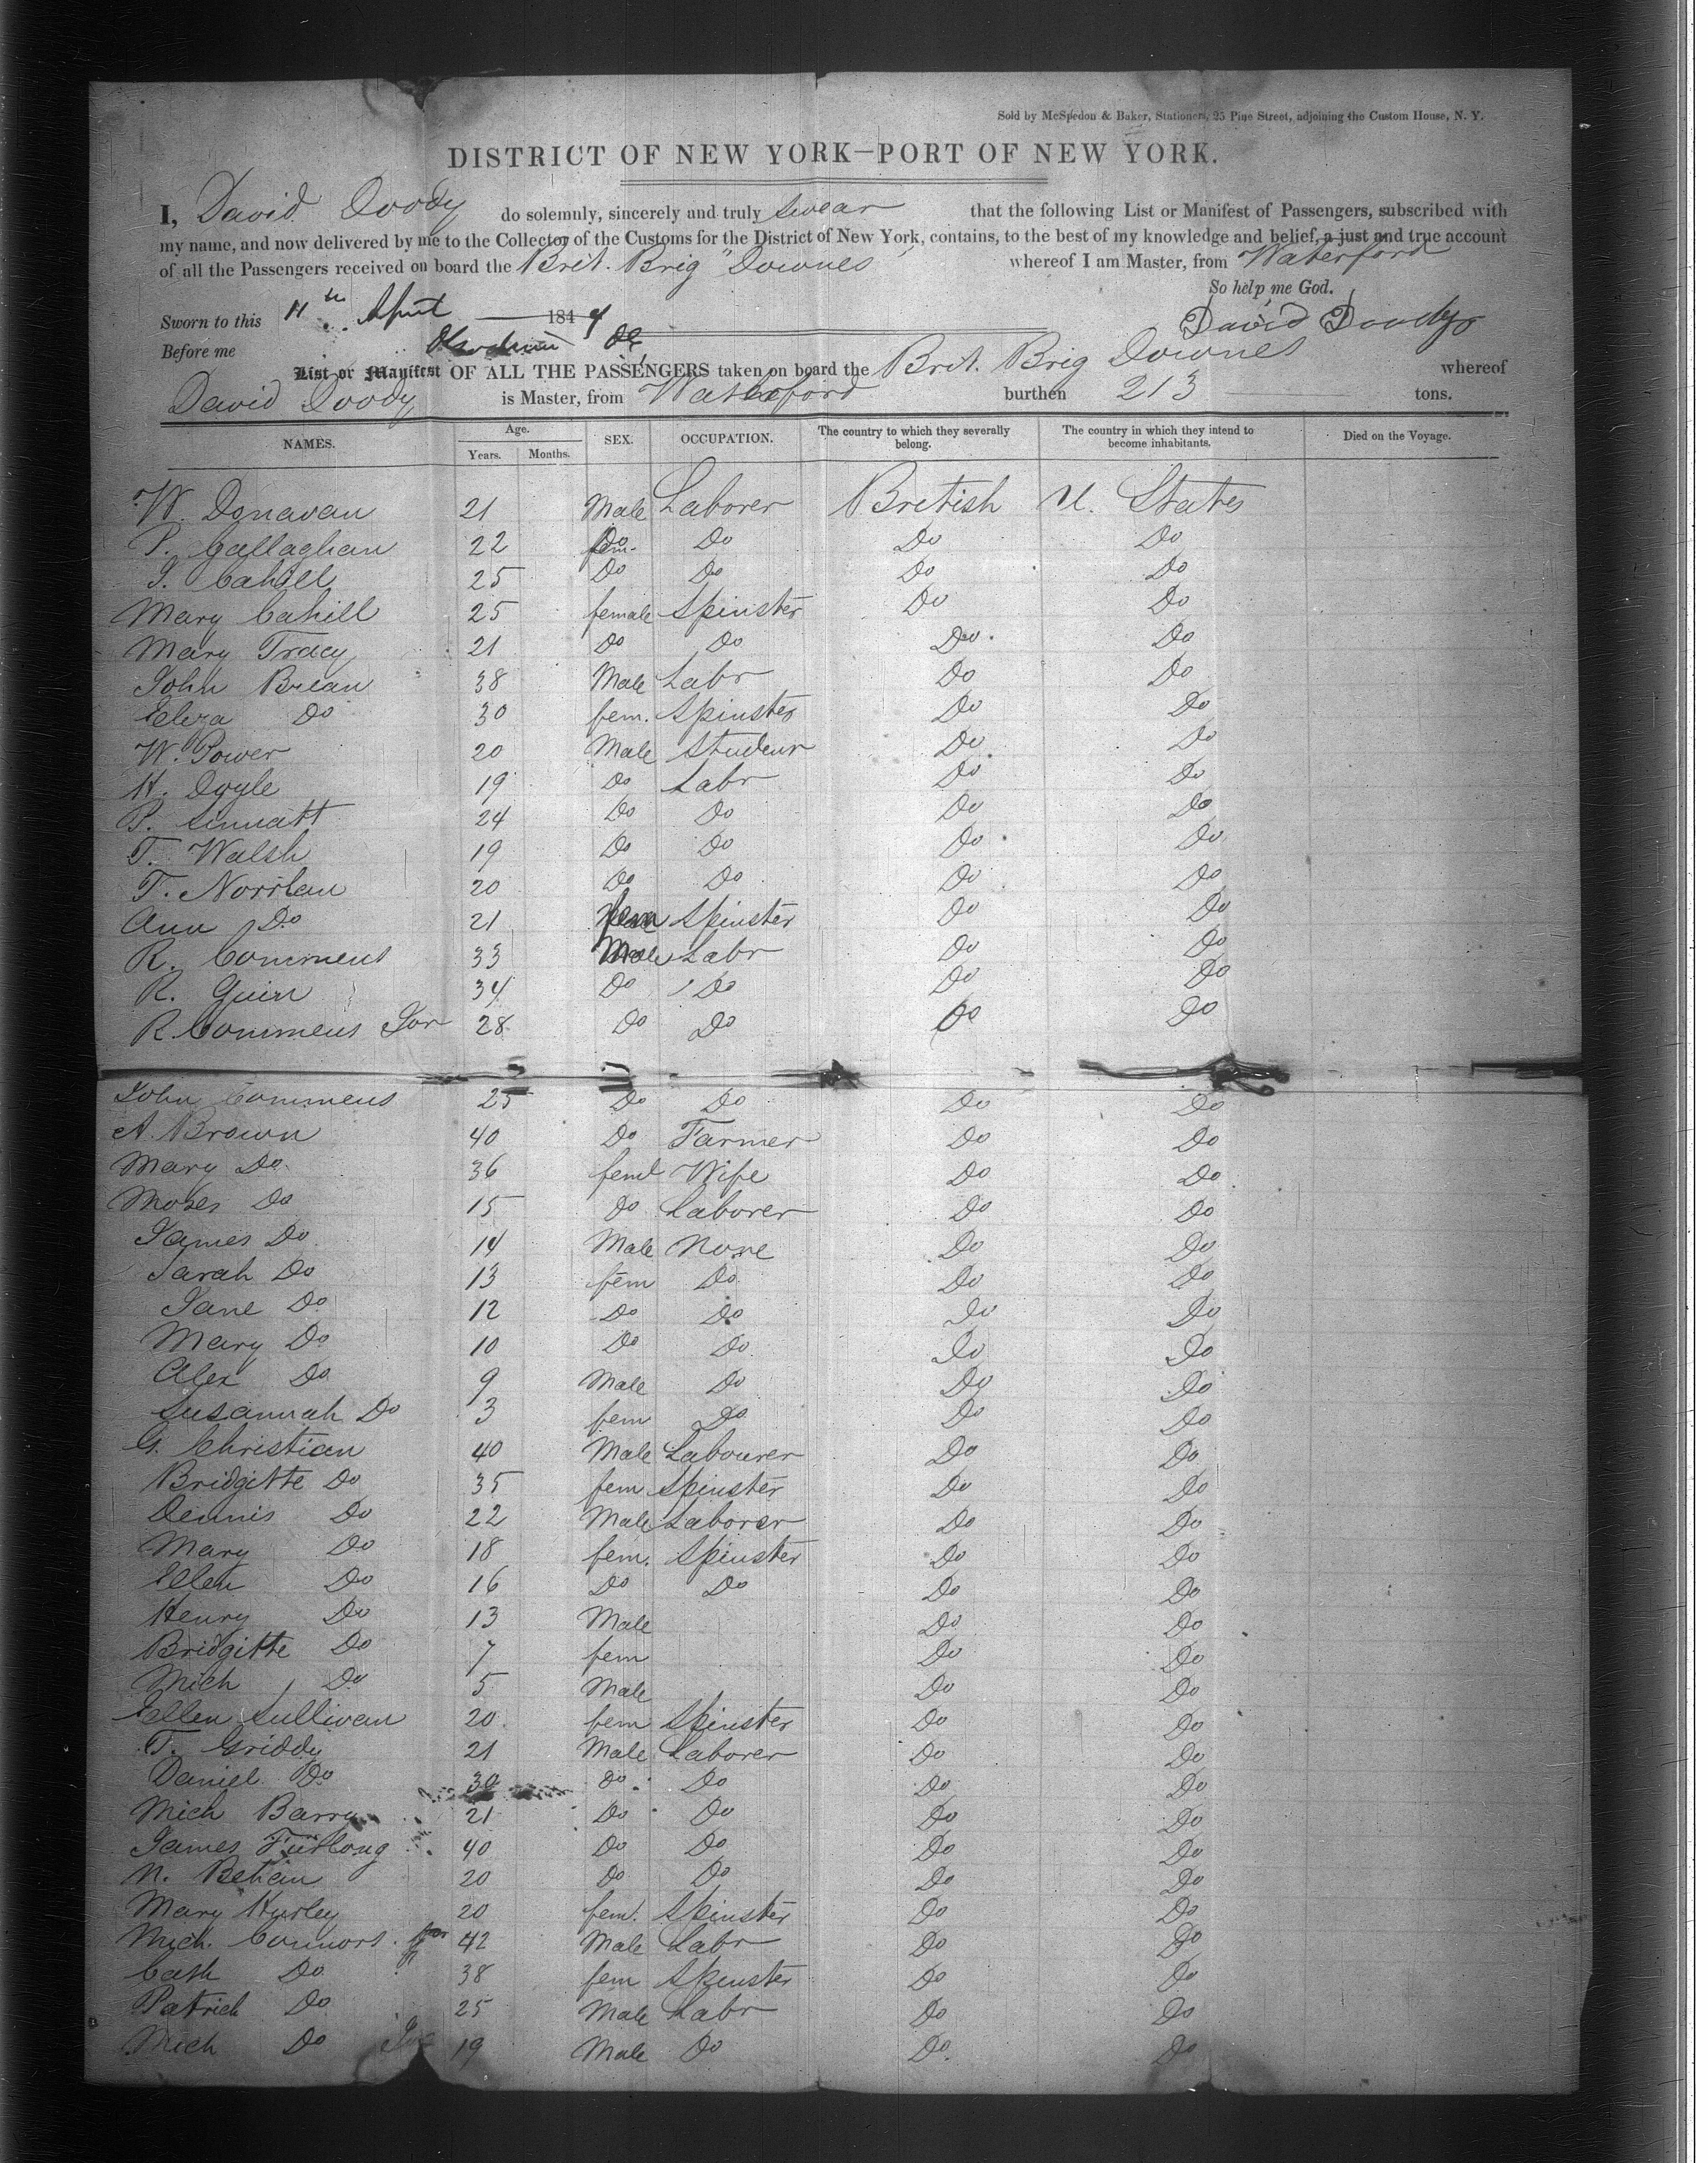 Sold by McSpedon & Baker, Stationers, 25 Pine Street, adjoining the Custom House, N. Y.
DISTRICT OF NEW YORK—PORT OF NEW YORK.
I, David Doody do solemnly, sincerely and truly swear that the following List or Manifest of Passengers, subscribed with
my name, and now delivered by me to the Collector of the Customs for the District of New York, contains, to the best of my knowledge and belief, a just and true account
of all the Passengers received on board the Brit. Brig "Downes" whereof I am Master, from Waterford
So help me God.
Sworn to this 11th April 184 David Doody
Before me
List or Manifest OF ALL THE PASSENGERS taken on board the Brit. Brig Downes whereof
David Doody is Master, from Waterford burthen 213 tons.
NAMES. Age. Years. Months. SEX. OCCUPATION. The country to which they severally belong. The country in which they intend to become inhabitants. Died on the Voyage.
W. Donavan 21 Male Laborer British U. States
P. Gallaghan 22 Do Do Do
J. Cahill 25 Do Do Do Do
Mary Cahill 25 female Spinster Do Do
Mary Tracy 21 Do Do Do Do
John Brean 38 Male Labr Do Do
Eliza Do 30 fem. Spinster Do Do
W. Power 20 Male Do Do
H. Doyle 19 Do Labr Do Do
P. Sinnatt 24 Do Do Do Do
T. Walsh 19 Do Do Do Do
T. 20 Do Do Do Do
Ann Do 21 fem Spinster Do Do
R. Commens 33 Male Labr Do Do
R. Guin 34 Do Do Do Do
R. Commens 28 Do Do Do Do
John Commens 25 Do Do Do Do
A. Brown 40 Do Farmer Do Do
Mary Do. 36 feml Wife Do Do
Moses Do 15 Do Laborer Do Do
James Do 14 Male None Do Do
Sarah Do 13 fem Do Do Do
Jane Do 12 Do Do Do Do
Mary Do 10 Do Do Do Do
Alex Do 9 Male Do Do Do
Susannah Do 3 fem Do Do Do
G. Christian 40 Male Labourer Do Do
Bridgitte Do 35 fem Spinster Do Do
Dennis Do 22 Male Laborer Do Do
Mary Do 18 fem. Spinster Do Do
Ellen Do 16 Do Do Do Do
Henry Do 13 Male Do Do
Bridgitte Do 7 fem Do Do
Mich Do 5 Male Do Do
Ellen Sullivan 20 fem Spinster Do Do
T. Griddy 21 Male Laborer Do Do
Daniel Do 30 Do Do Do Do
Mich Barry 21 Do Do Do Do
James Furlong 40 Do Do Do Do
N. Behan 20 Do Do Do Do
Mary Hurley 20 fem. Spinster Do Do
Mich. Connors 42 Male Labr Do Do
Cath Do 38 fem Spinster Do Do
Patrick Do 25 Male Labr Do Do
Mich Do 19 Male Do Do Do